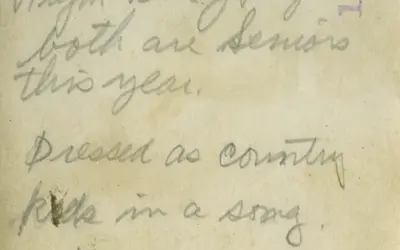 both are Seniors
this year.
Dressed as country
kids in a song.